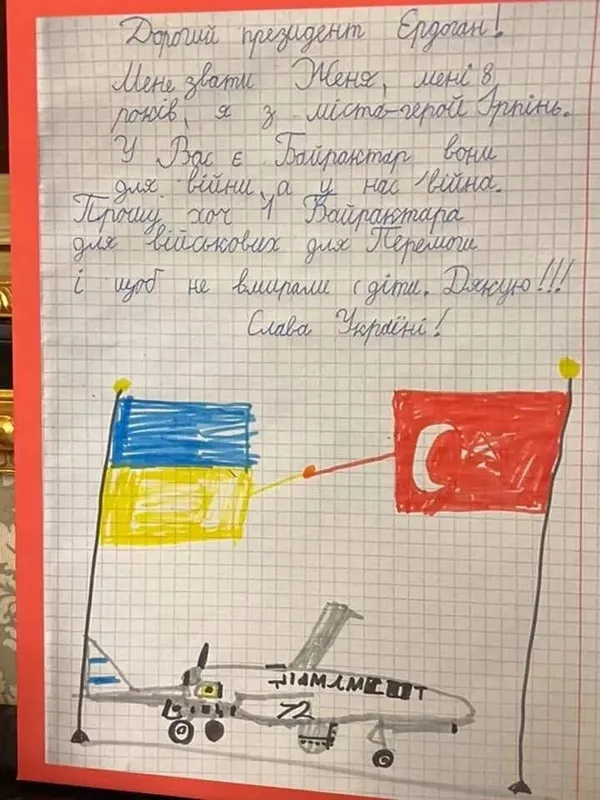 Дорогий президент Ердоган!
Мене звати Женя, мені 8
років, я з міста-герой Ірпінь.
У Вас є Байрактар вони
для війни, а у нас війна.
Прошу хоч 1 Байрактара
для військових для Перемоги
і щоб не вмирали діти. Дякую!!!
Слава Україні!
72